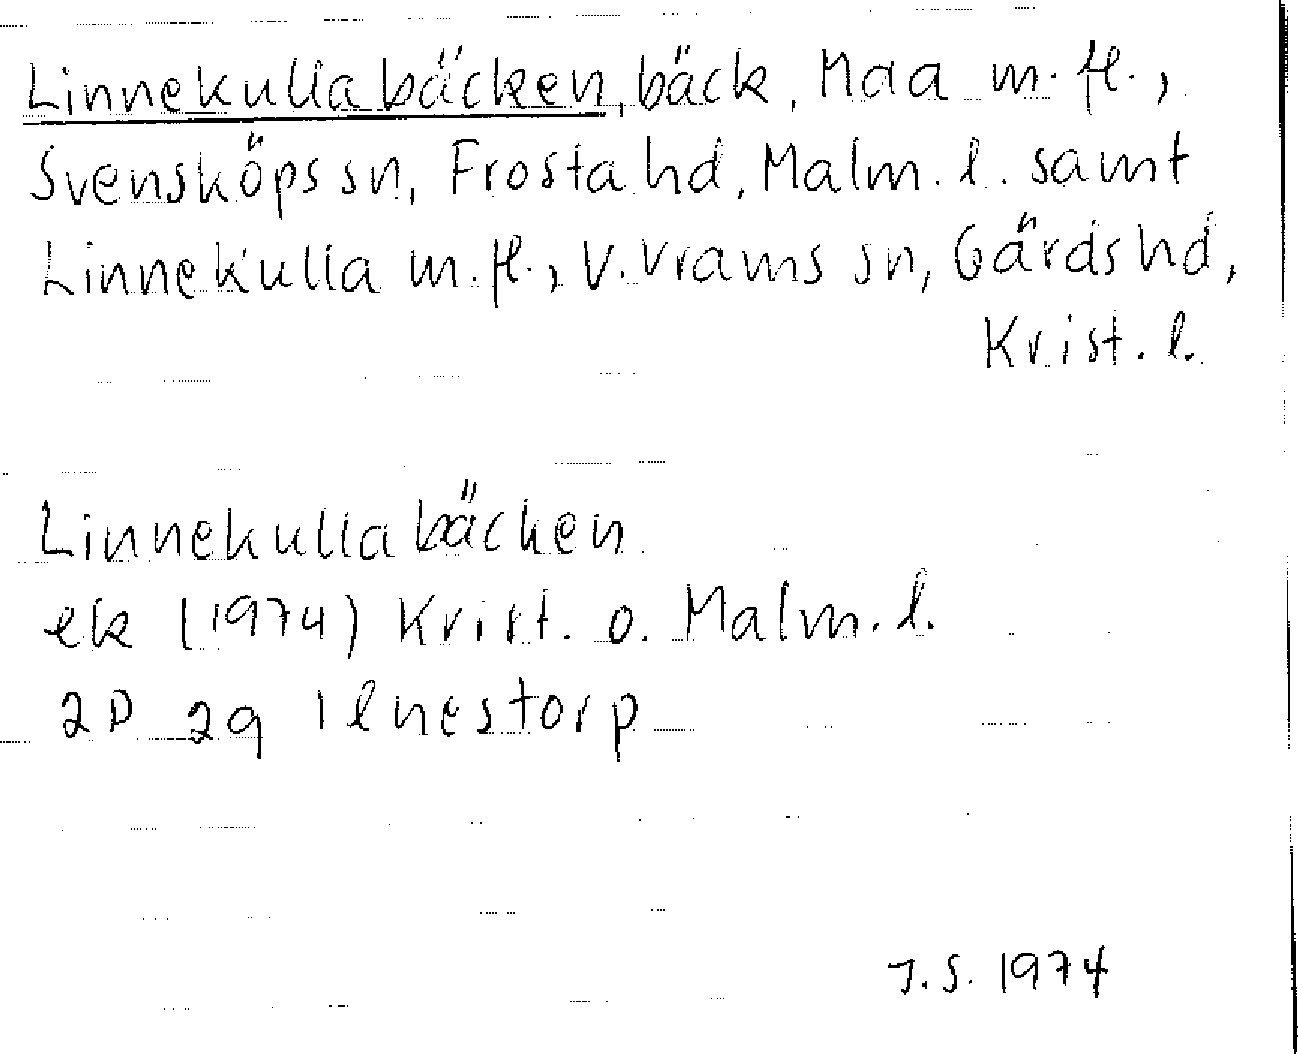 Linnekullabäcken, bäck, Maa m. fl.,
Svensköps sn, Frosta hd, Malm. l. samt
Linnekulla m. fl., V. Vrams sn, Gärds hd,
Krist. l.
Linnekullabäcken
ek (1974) Krist. o. Malm. l.
2D 2g Ilnestorp
J. S. 1974